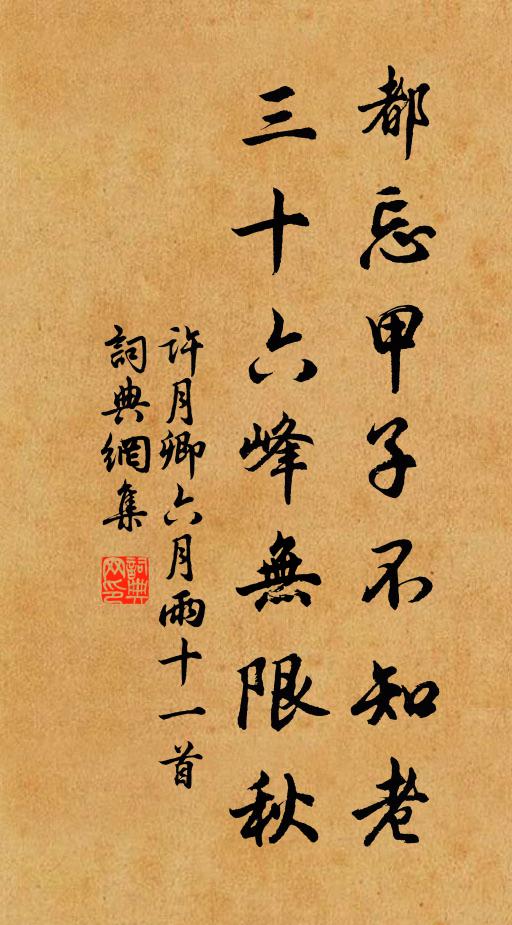 都忘甲子不知老
三十六峰無限秋
許月卿六月雨十一首
詞典網集
詞典網印